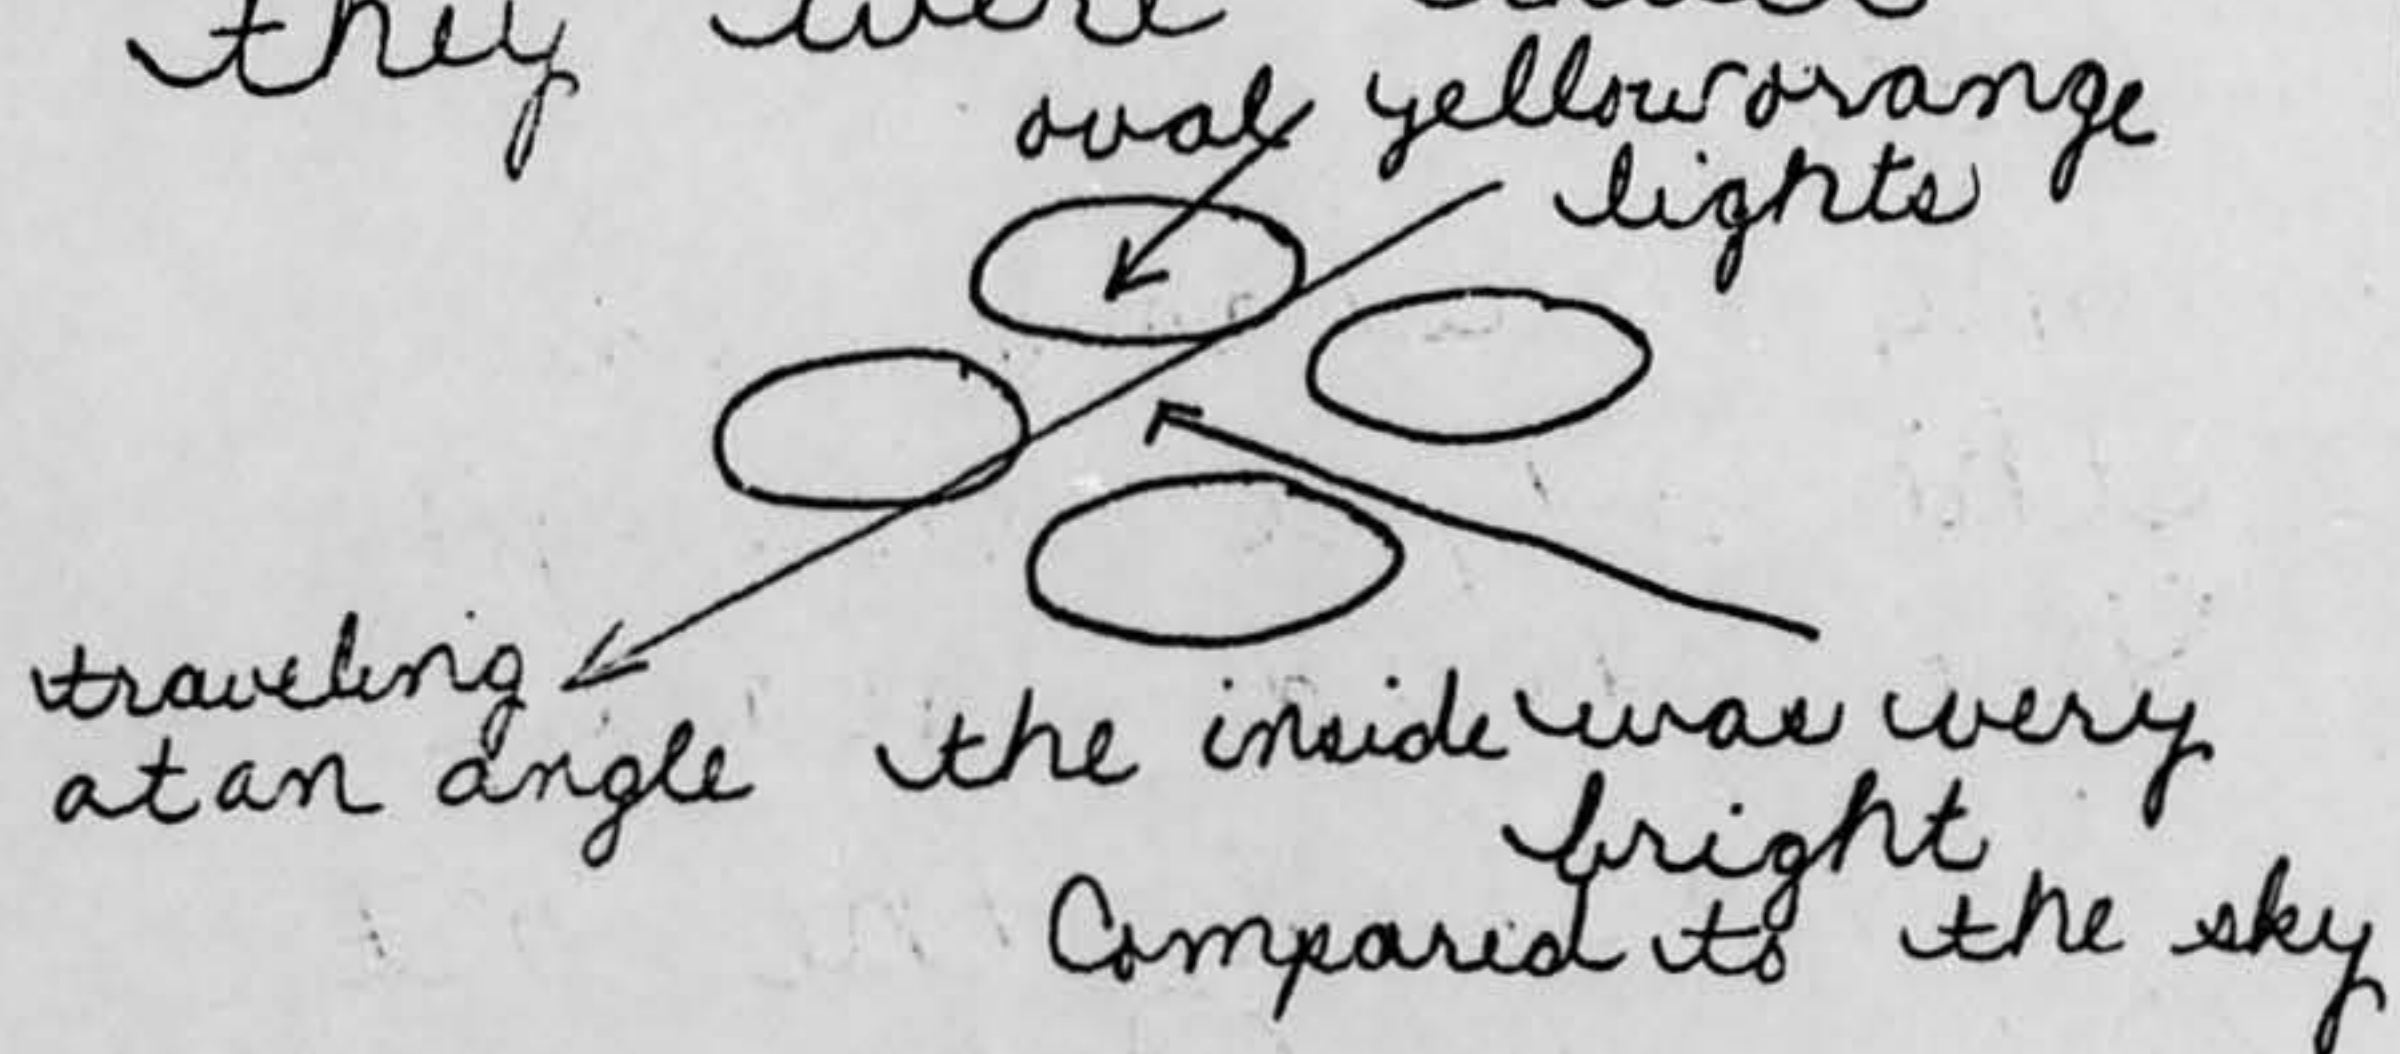 they were
oval yellow orange
lights
traveling
at an angle
the inside was very
bright
Compared to the sky